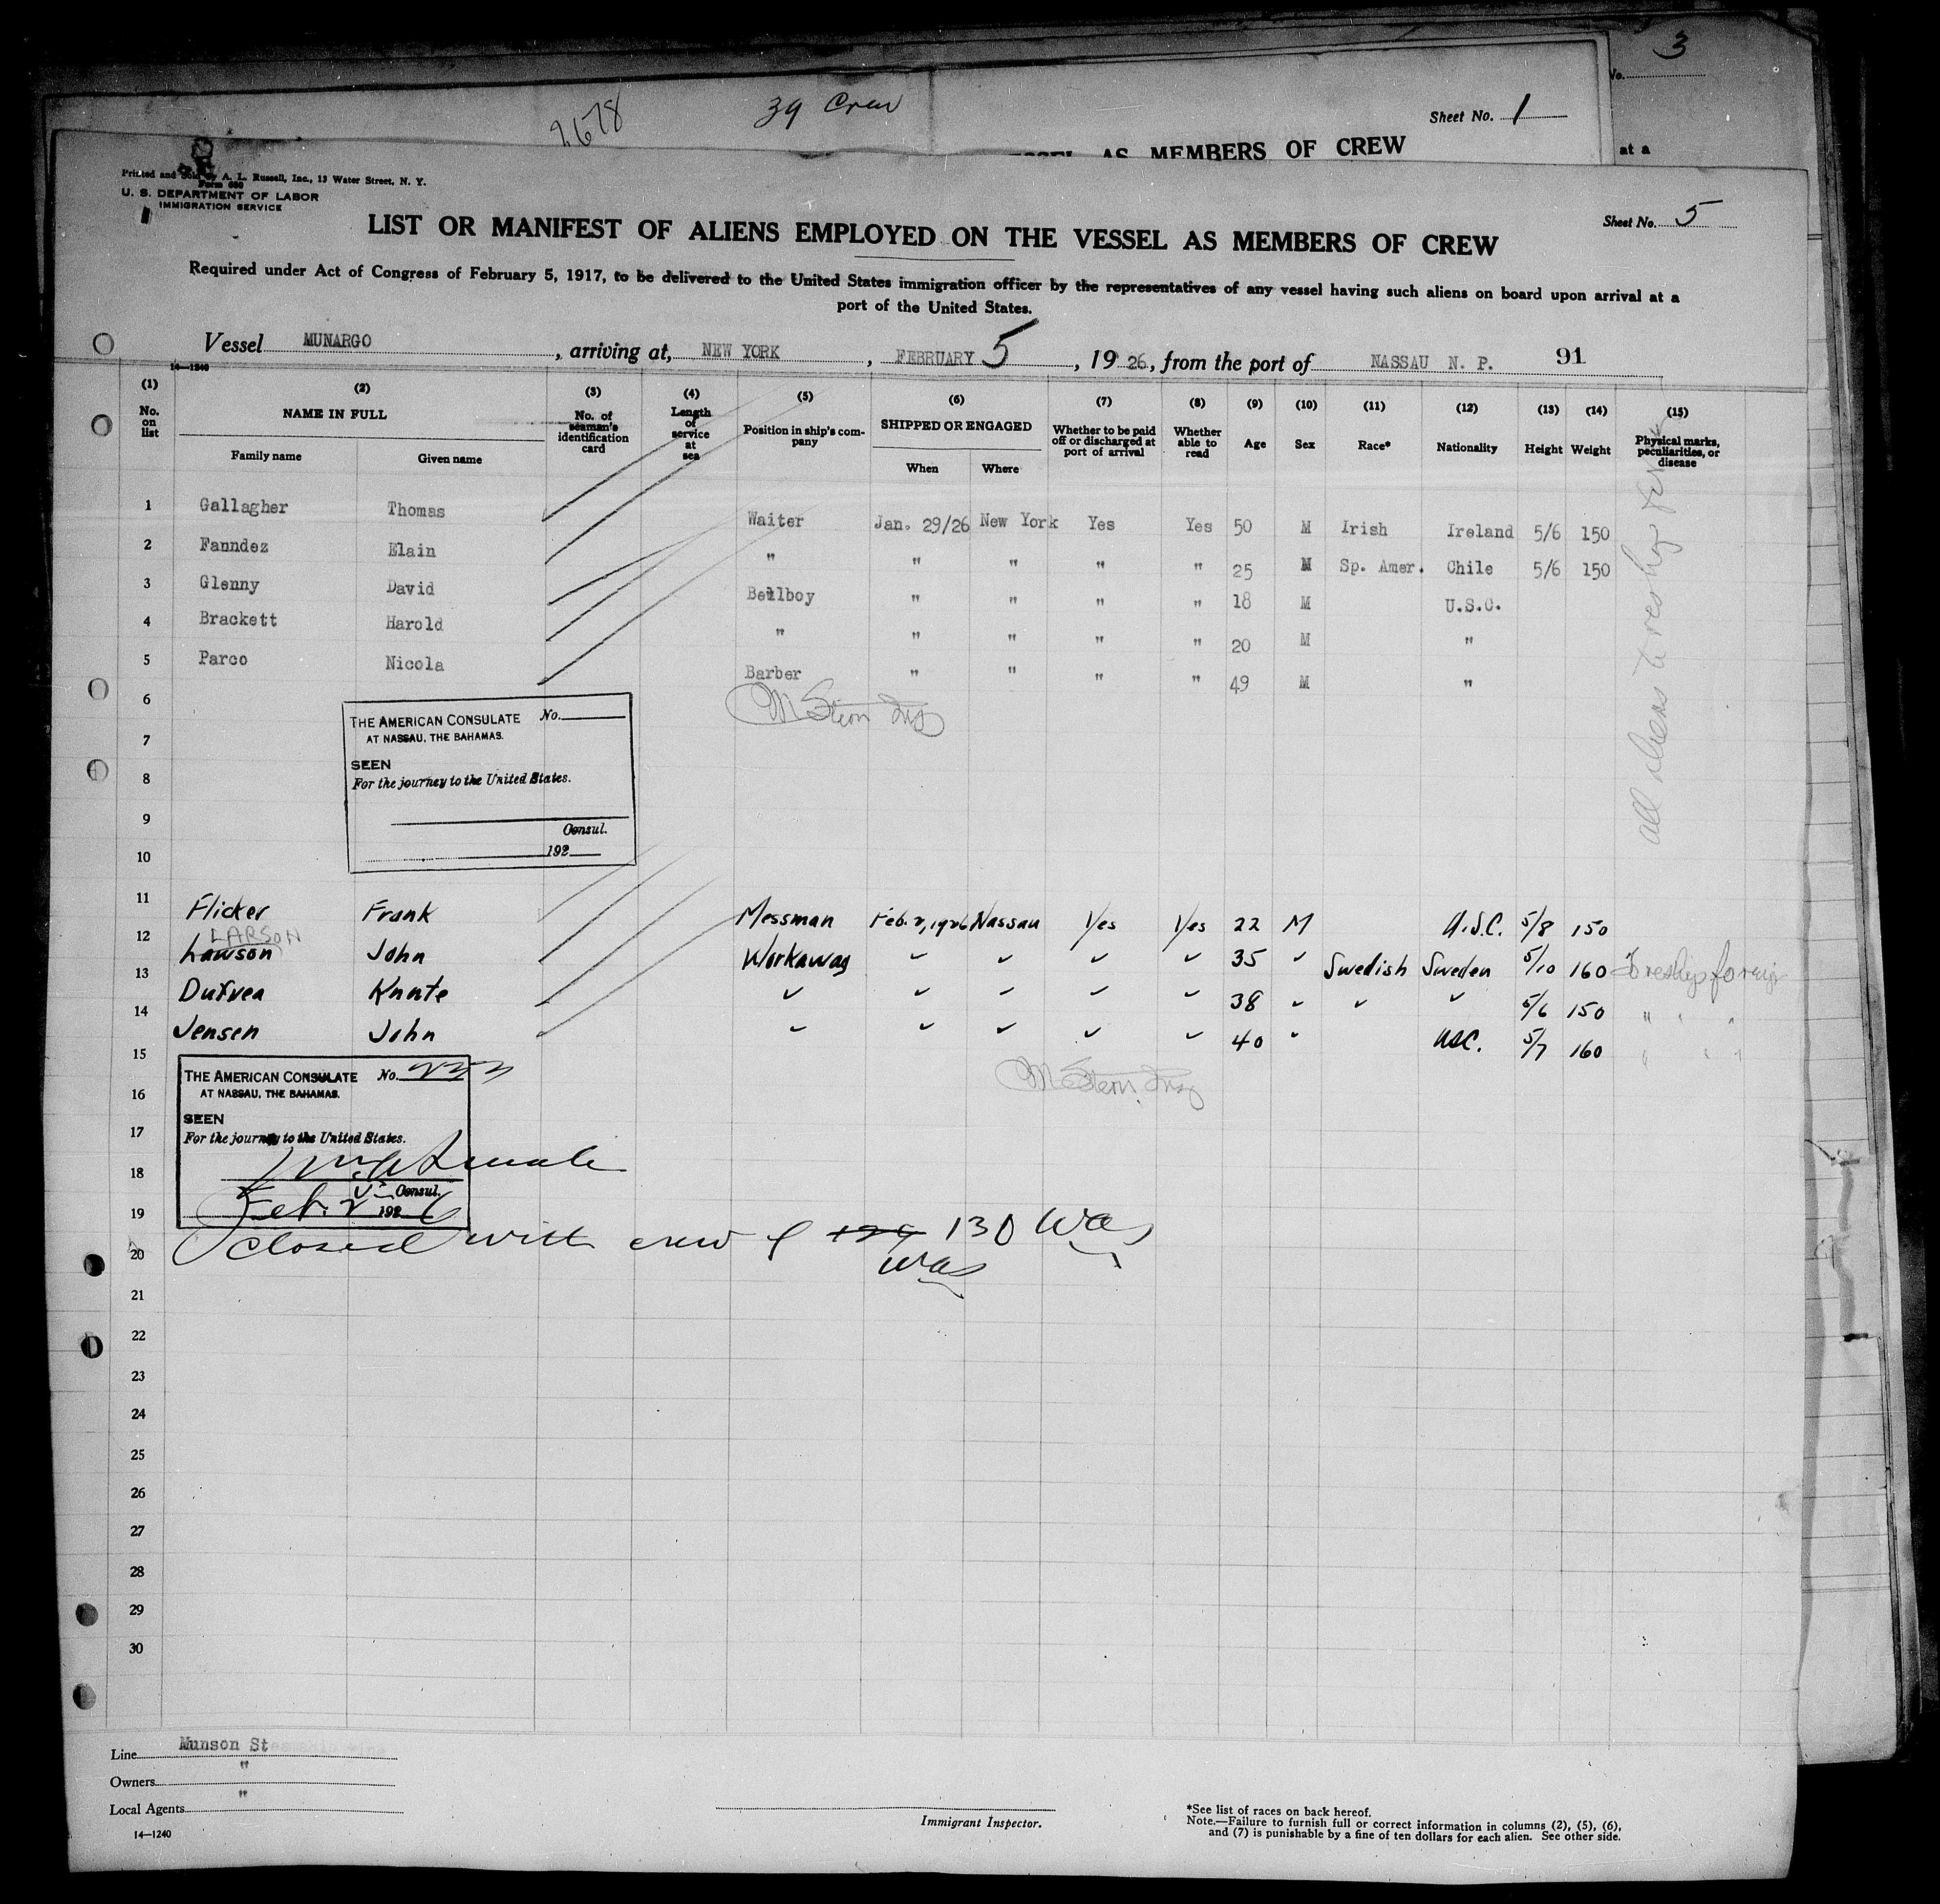 3
No.
2678
39 Crew
Sheet No. 1
AS MEMBERS OF CREW
at a
Printed and Sold by A. L. Russell, Inc., 13 Water Street, N. Y.
Form 680
U. S. DEPARTMENT OF LABOR
IMMIGRATION SERVICE
Sheet No. 5
LIST OR MANIFEST OF ALIENS EMPLOYED ON THE VESSEL AS MEMBERS OF CREW
Required under Act of Congress of February 5, 1917, to be delivered to the United States immigration officer by the representatives of any vessel having such aliens on board upon arrival at a
port of the United States.
Vessel MUNARGO, arriving at, NEW YORK, FEBRUARY 5, 1926, from the port of NASSAU N. P. 91
14—1240
(1) (2) (3) (4) (5) (6) (7) (8) (9) (10) (11) (12) (13) (14) (15)
No. on list NAME IN FULL No. of seaman's identification card Length of service at sea Position in ship's company SHIPPED OR ENGAGED Whether to be paid off or discharged at port of arrival Whether able to read Age Sex Race* Nationality Height Weight Physical marks, peculiarities, or disease
Family name Given name When Where
1 Gallagher Thomas Waiter Jan. 29/26 New York Yes Yes 50 M Irish Ireland 5/6 150
2 Fanndez Elain " " " " " 25 M Sp. Amer. Chile 5/6 150
3 Glenny David Bellboy " " " " 18 M U.S.C.
4 Brackett Harold " " " " " 20 M "
5 Parco Nicola Barber " " " " 49 M "
all aliens to reship
6
M Stern Insp
THE AMERICAN CONSULATE No.
AT NASSAU, THE BAHAMAS.
7
SEEN
8
For the journey to the United States.
9
Consul.
10
192
11 Flicker Frank Messman Feb. 2, 1926 Nassau Yes Yes 22 M U.S.C. 5/8 150
LARSON
12 Lawson John Workaway ✓ ✓ ✓ ✓ 35 ✓ Swedish Sweden 5/10 160 To reship foreign
13 Knute ✓ ✓ ✓ ✓ ✓ 38 ✓ ✓ ✓ 5/6 150 " " "
14 Jensen John ✓ ✓ ✓ ✓ ✓ 40 ✓ USC. 5/7 160 " " "
15
THE AMERICAN CONSULATE No.
AT NASSAU, THE BAHAMAS.
M Stern Insp
16
SEEN
17
For the journey to the United States.
18
Consul.
19
Feb. 2 1926
20
Closed with crew of 129 130 Was
Was
21
22
23
24
25
26
27
28
29
30
Line Munson St
Owners "
Local Agents "
14—1240
Immigrant Inspector.
*See list of races on back hereof.
Note.—Failure to furnish full or correct information in columns (2), (5), (6),
and (7) is punishable by a fine of ten dollars for each alien. See other side.